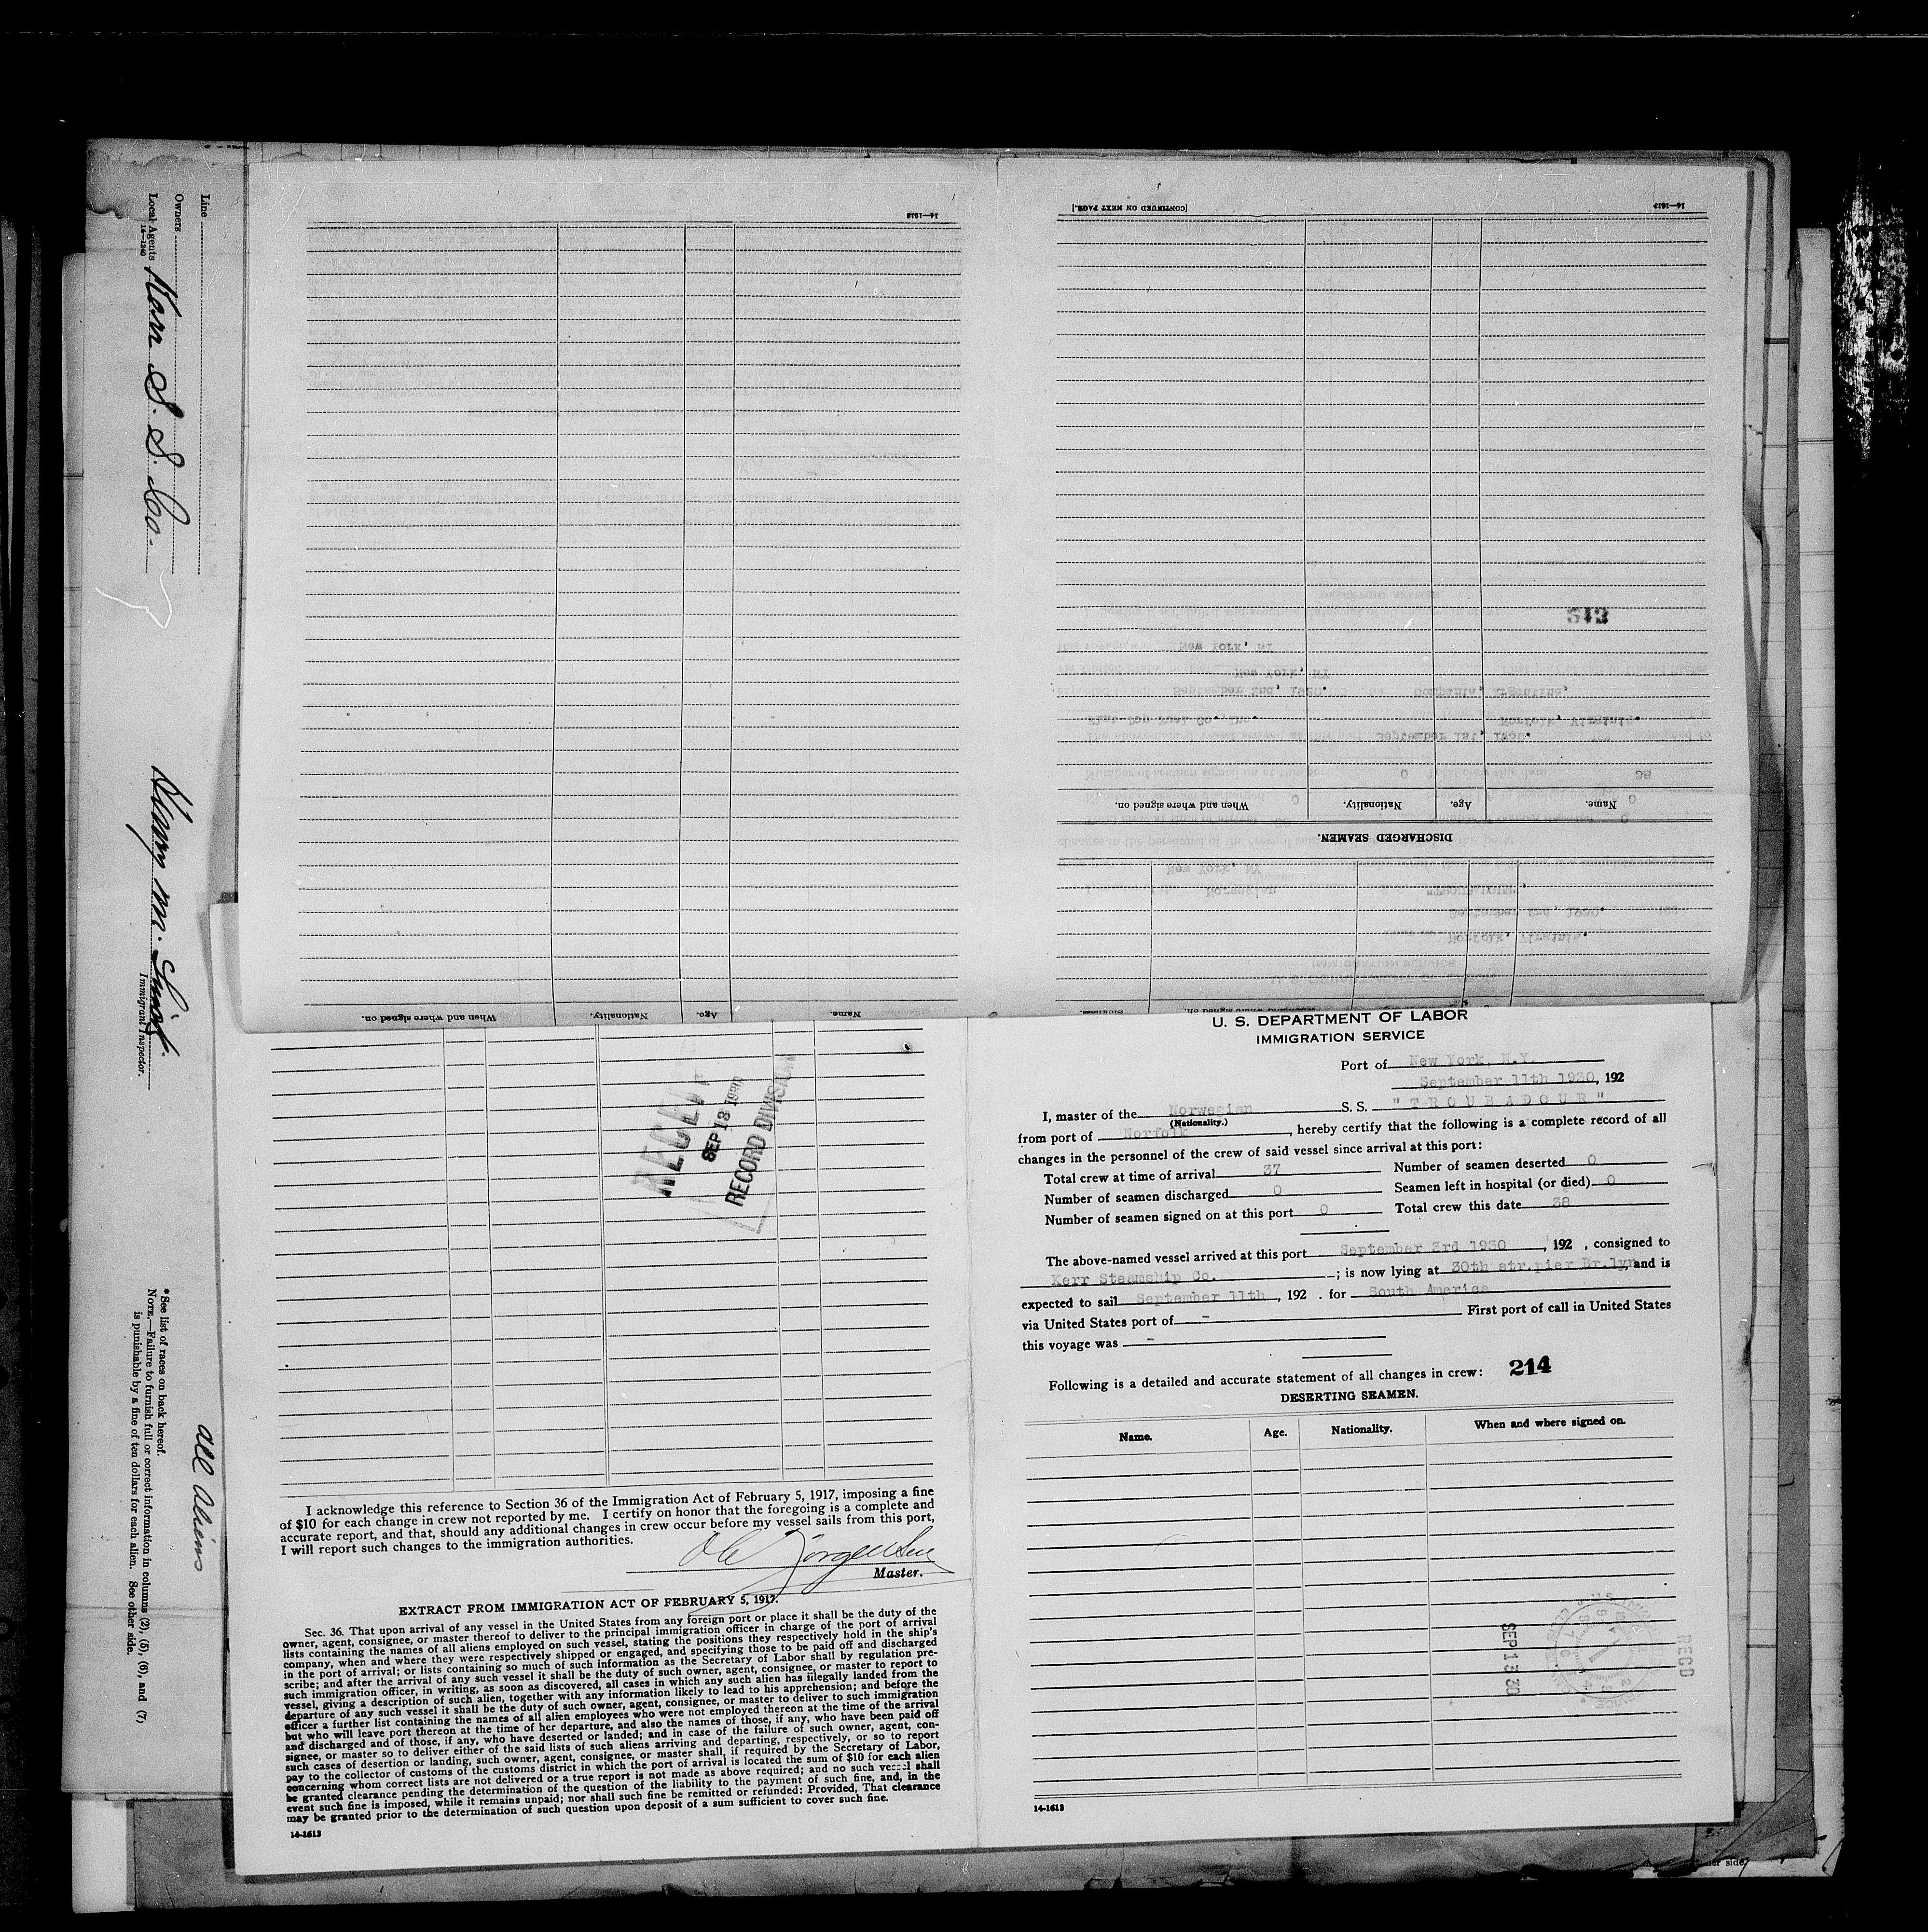 Line
Owners
Local Agents Kerr S. S. Co.
14—1240
Immigrant Inspector.
* See list of races on back hereof.
NOTE.—Failure to furnish full or correct information in columns (2), (5), (6), and (7)
is punishable by a fine of ten dollars for each alien. See other side.
all aliens
14—1613
When and where signed on. Nationality. Age. Name.
[CONTINUED ON NEXT PAGE.] 14—1613
213
When and where signed on. Nationality. Age. Name.
DISCHARGED SEAMEN.
SEP 18 1930
RECORD DIVISION
I acknowledge this reference to Section 36 of the Immigration Act of February 5, 1917, imposing a fine
of $10 for each change in crew not reported by me. I certify on honor that the foregoing is a complete and
accurate report, and that, should any additional changes in crew occur before my vessel sails from this port,
I will report such changes to the immigration authorities.
Ole Jörgensen
Master.
EXTRACT FROM IMMIGRATION ACT OF FEBRUARY 5, 1917.
Sec. 36. That upon arrival of any vessel in the United States from any foreign port or place it shall be the duty of the
owner, agent, consignee, or master thereof to deliver to the principal immigration officer in charge of the port of arrival
lists containing the names of all aliens employed on such vessel, stating the positions they respectively hold in the ship's
company, when and where they were respectively shipped or engaged, and specifying those to be paid off and discharged
in the port of arrival; or lists containing so much of such information as the Secretary of Labor shall by regulation pre-
scribe; and after the arrival of any such vessel it shall be the duty of such owner, agent, consignee, or master to report to
such immigration officer, in writing, as soon as discovered, all cases in which any such alien has illegally landed from the
vessel, giving a description of such alien, together with any information likely to lead to his apprehension; and before the
departure of any such vessel it shall be the duty of such owner, agent, consignee, or master to deliver to such immigration
officer a further list containing the names of all alien employees who were not employed thereon at the time of the arrival
but who will leave port thereon at the time of her departure, and also the names of those, if any, who have been paid off
and discharged and of those, if any, who have deserted or landed; and in case of the failure of such owner, agent, con-
signee, or master so to deliver either of the said lists of such aliens arriving and departing, respectively, or so to report
such cases of desertion or landing, such owner, agent, consignee, or master shall, if required by the Secretary of Labor,
pay to the collector of customs of the customs district in which the port of arrival is located the sum of $10 for each alien
concerning whom correct lists are not delivered or a true report is not made as above required; and no such vessel shall
be granted clearance pending the determination of the question of the liability to the payment of such fine, and, in the
event such fine is imposed, while it remains unpaid; nor shall such fine be remitted or refunded: Provided, That clearance
may be granted prior to the determination of such question upon deposit of a sum sufficient to cover such fine.
14-1613
U. S. DEPARTMENT OF LABOR
IMMIGRATION SERVICE
Port of New York, N.Y.
September 11th 1930, 192
I, master of the Norwegian S. S. "TROUBADOUR"
(Nationality.)
from port of Norfolk, hereby certify that the following is a complete record of all
changes in the personnel of the crew of said vessel since arrival at this port:
Total crew at time of arrival 37 Number of seamen deserted 0
Number of seamen discharged 0 Seamen left in hospital (or died) 0
Number of seamen signed on at this port 0 Total crew this date 38
The above-named vessel arrived at this port September 3rd 1930, 192 , consigned to
Kerr Steamship Co. ; is now lying at 30th str.pier Br.lyn and is
expected to sail September 11th, 192 . for South America
via United States port of - First port of call in United States
this voyage was -
Following is a detailed and accurate statement of all changes in crew: 214
DESERTING SEAMEN.
Name. Age. Nationality. When and where signed on.
RECD
14-1613